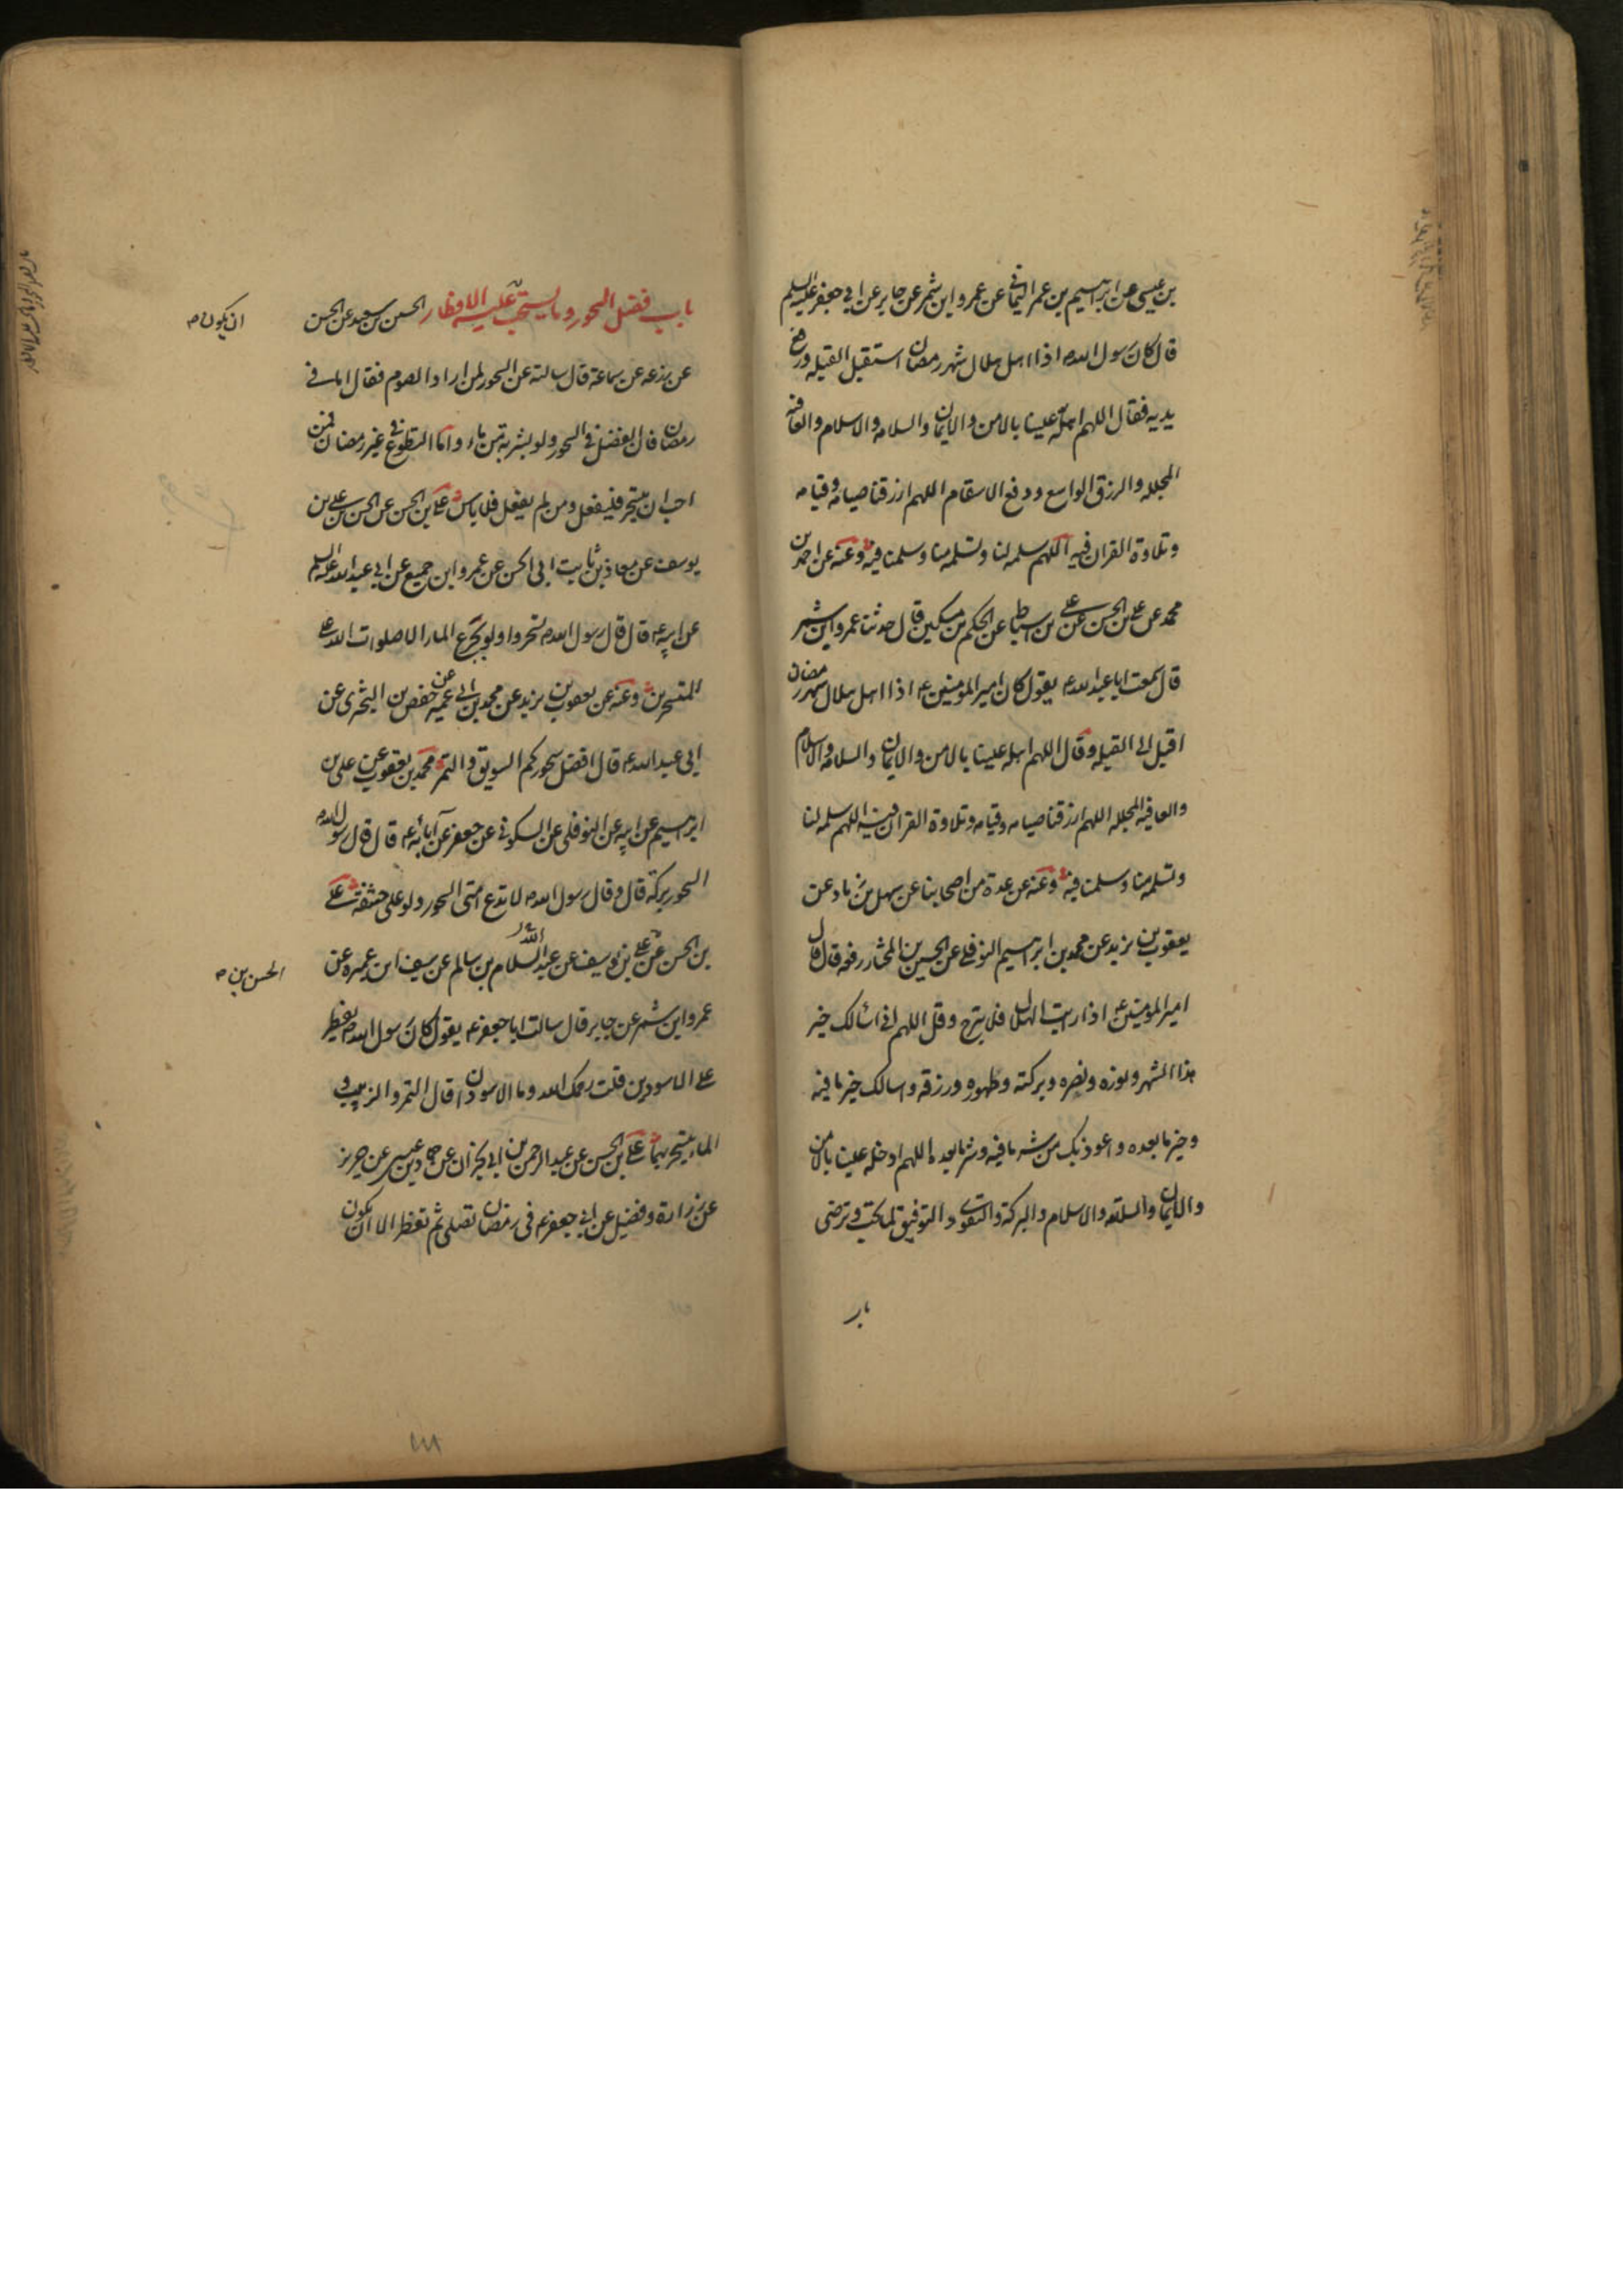 بن عيسى عن ابراهيم بن عمر اليماني عن عمرو ابن شمر عن جابر عن ابي جعفر عليه السلم
قال كان رسول الله ص اذا اهل هلال شهر رمضان استقبل القبله ورفع
يديه فقال اللهم اهله علينا بالامن والايمان والسلامه والاسلام والعافيه
المجلله والرزق الواسع ودفع الاسقام اللهم ارزقنا صيامه وقيامه
وتلاوة القران فيه اللهم سلمه لنا وتسلمه منا وسلمنا فيه وعنه عن احمد بن
محمد عن علي بن الحسن عن علي بن اسباط عن الحكم بن مسكين قال حدثنا عمرو ابن شمر
قال سمعت ابا عبدالله ع يقول كان امير المومنين ع اذا اهل هلال شهر رمضان
اقبل الى القبله وقال اللهم اهله علينا بالامن والايمان والسلامه والاسلام
والعافيه المجلله اللهم ارزقنا صيامه وقيامه وتلاوة القران فيه اللهم سلمه لنا
وتسلمه منا وسلمنا فيه وعنه عن عدة من اصحابنا عن سهل بن زياد عن
يعقوب بن يزيد عن محمد بن ابراهيم النوفلي عن الحسين بن المختار رفعه قال قال
امير المومنين ع اذا رايت الهلال فلا تبرح وقل اللهم اني اسالك خير
هذا الشهر ونوره ونصره وبركته وطهوره ورزقه واسالك خير ما فيه
وخير ما بعده واعوذ بك من شر ما فيه وشر ما بعده اللهم ادخله علينا بالامن
والايمان والسلامه والاسلام والبركة والتقوى والتوفيق لما تحب وترضى
باب
باب فضل السحور وما يستحب عليه الافطار الحسين بن سعيد عن الحسن
عن زرعه عن سماعة قال سالته عن السحور لمن اراد الصوم فقال اما في
رمضان فان الفضل في السحور ولو بشربة من ماء واما التطوع في غير رمضان فمن
احب ان يتسحر فليفعل ومن لم يفعل فلا باس علي بن الحسن عن الحسن بن علي بن
يوسف عن معاذ بن ثابت ابي الحسن عن عمرو ابن جميع عن ابي عبدالله عليه السلم
عن ابيه ع قال قال رسول الله ص تسحروا ولو بجرع الماء الا صلوات الله على
المتسحرين وعنه عن يعقوب بن يزيد عن محمد بن ابي عمير عن حفص بن البختري عن
ابي عبدالله ع قال افضل سحوركم السويق والتمر محمد بن يعقوب عن علي بن
ابراهيم عن ابيه عن النوفلي عن السكوني عن جعفر عن آبائه ع قال قال رسول الله ص
السحور بركة قال وقال رسول الله ص لا تدع امتي السحور ولو على حشفة علي
بن الحسن عن علي بن يوسف عن عبد السلام بن سالم عن سيف ابن عميره عن
عمرو ابن شمر عن جابر قال سالت ابا جعفر ع يقول كان رسول الله ص يفطر
على الاسودين قلت رحمك الله وما الاسودان قال التمر والزبيب و
الماء يتسحر بهما علي بن الحسن عن عبد الرحمن بن ابي نجران عن حماد بن عيسى عن حريز
عن زرارة وفضيل عن ابي جعفر ع في رمضان تصلي ثم تفطر الا ان يكون
ان يكون ص
الحسن بن ص